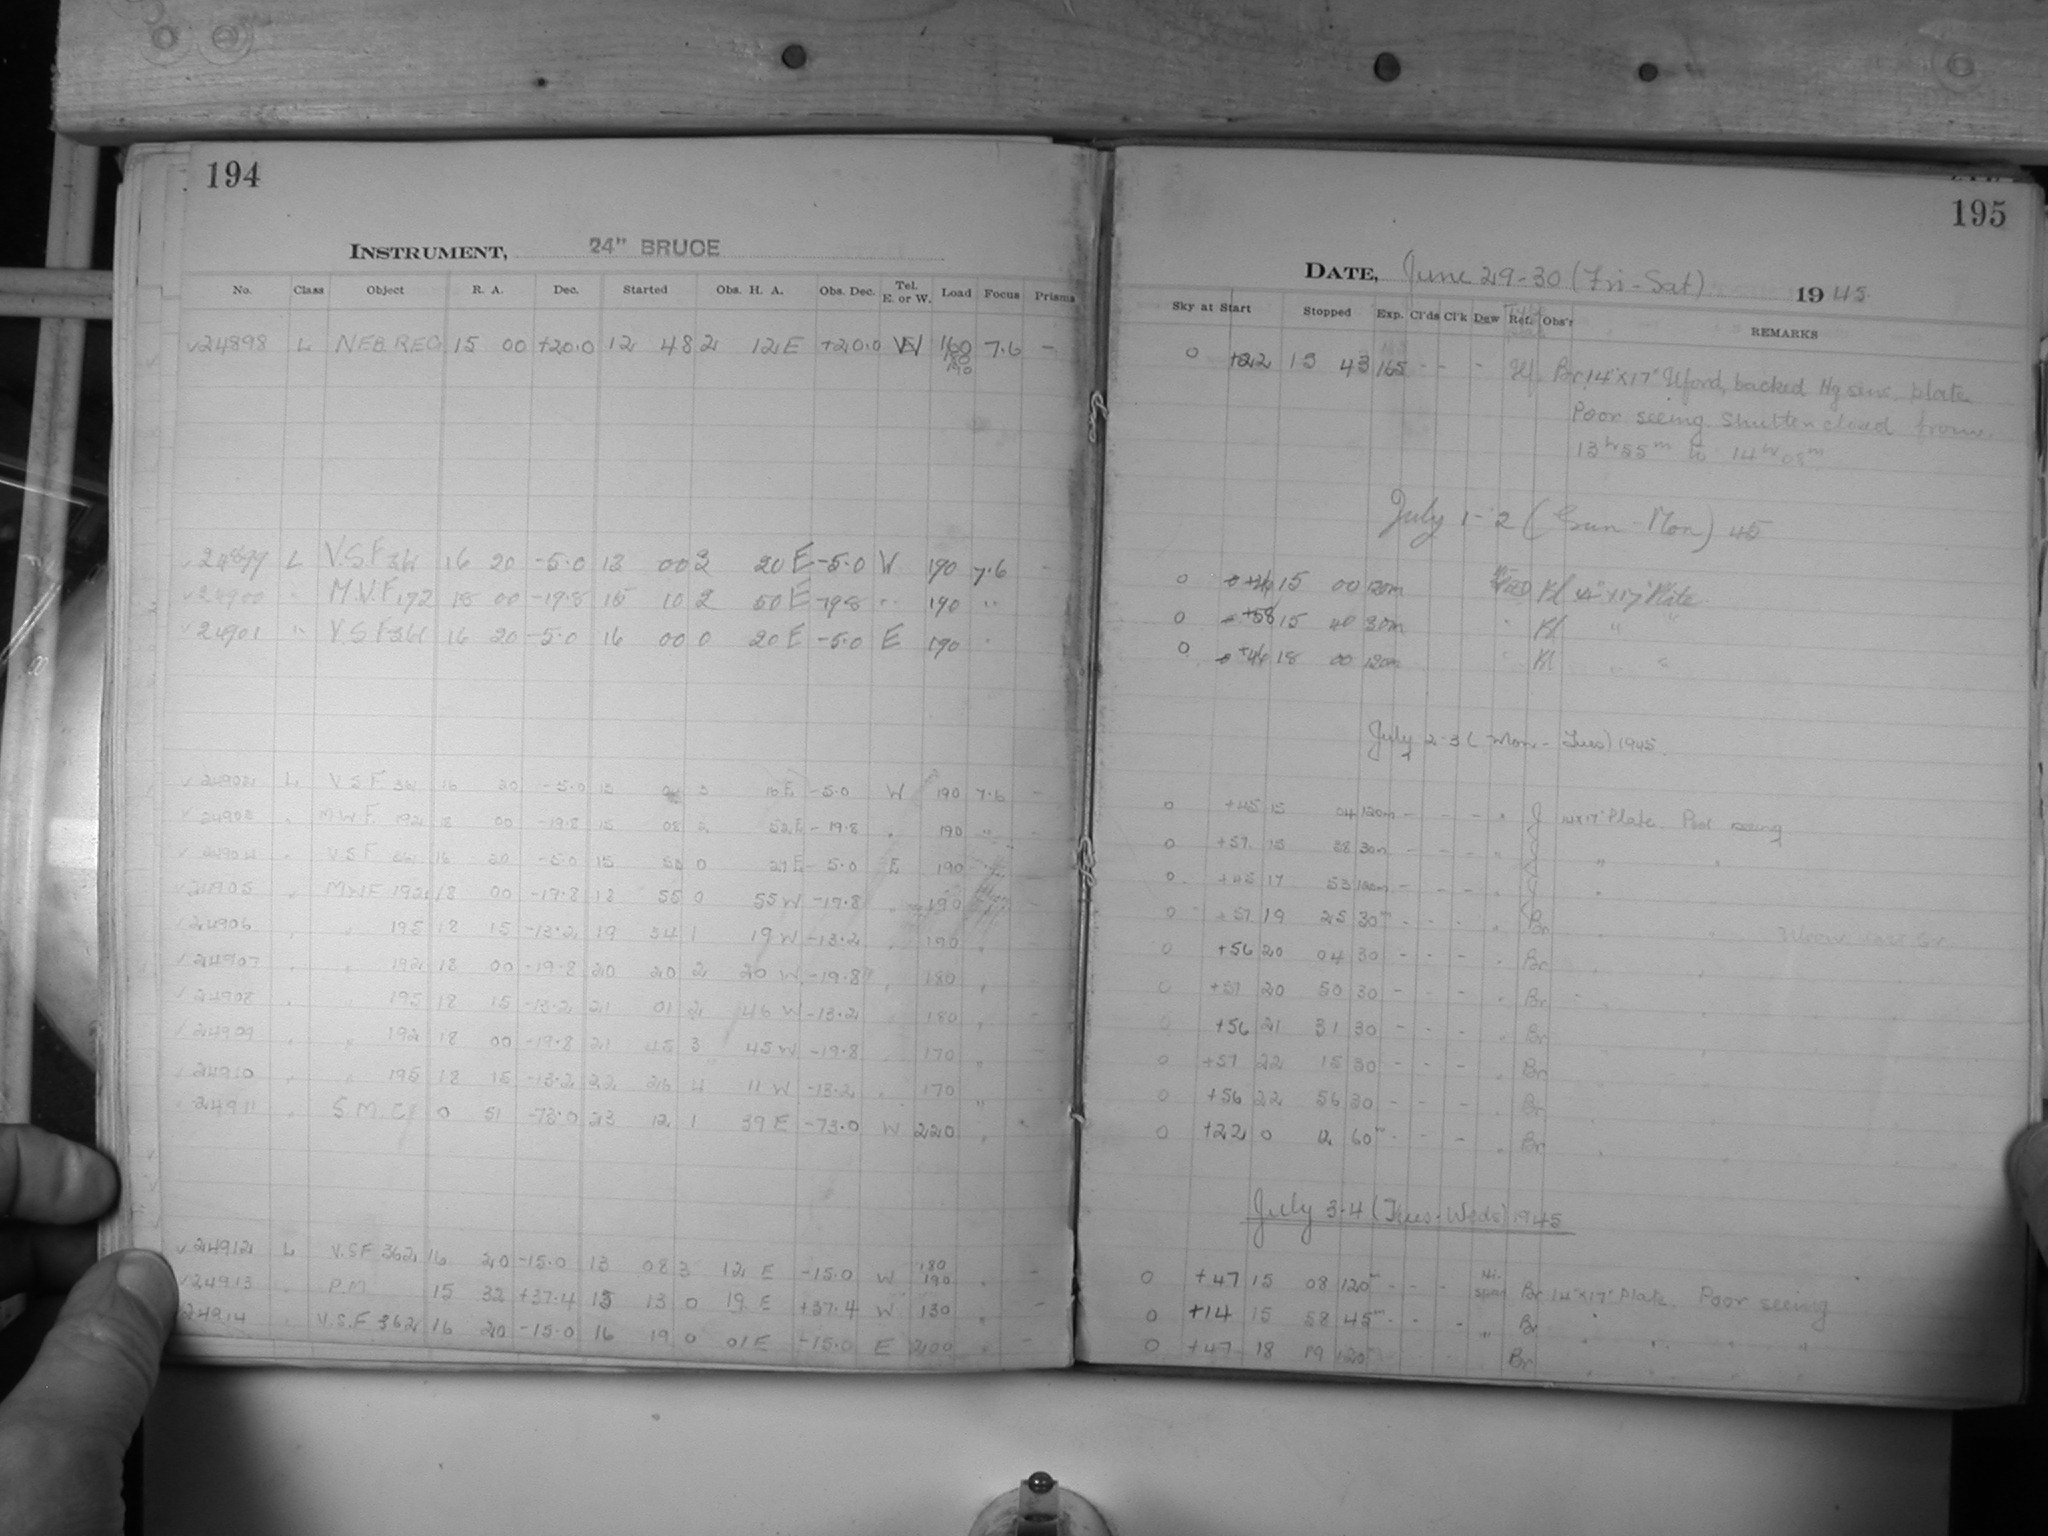 194
INSTRUMENT, 24" BRUCE
No. Class Object R. A. Dec. Started Obs. H. A. Obs. Dec. Tel. E. or W. Load Focus Prisms
24898 L NEB. REG 15 00 +20.0 12 48 2 12 E +20.0 W 160 190 7.6 -
24899 L V.S.F 361 16 20 -5.0 13 00 3 20 E -5.0 W 190 7.6 -
24900 " M.V.F 192 18 00 -19.8 15 10 2 50 E -19.8 " 190 "
24901 " V.S.F 361 16 20 -5.0 16 00 0 20 E -5.0 E 190 "
24902 L V.S.F 361 16 20 -5.0 13 3 16 E -5.0 W 190 7.6 -
24903 " M.W.F. 192 18 00 -19.8 15 08 2 52 E -19.8 " 190 "
24904 " V.S.F 361 16 20 -5.0 15 53 0 27 E -5.0 E 190
24905 " M.W.F 192 18 00 -19.8 18 55 0 55 W -19.8 " 190
24906 " " 195 18 15 -13.2 19 34 1 19 W -13.2 " 190 "
24907 " " 192 18 00 -19.8 20 20 2 20 W -19.8 " 180 "
24908 " " 195 18 15 -13.2 21 01 2 46 W -13.2 " 180 "
24909 " " 192 18 00 -19.8 21 45 3 45 W -19.8 " 170 "
24910 " " 195 18 15 -13.2 22 26 4 11 W -13.2 " 170 "
24911 " S.M.C 0 51 -73.0 23 12 1 39 E -73.0 W 220 "
24912 L V.S.F 362 16 20 -15.0 13 08 3 12 E -15.0 W 180 190 " -
24913 " P.M. 15 32 +37.4 15 13 0 19 E +37.4 W 130 " -
24914 " V.S.F 362 16 20 -15.0 16 19 0 01 E -15.0 E 200 " -
195
DATE, June 29-30 (Fri-Sat) 1945
Sky at Start Stopped Exp. Cl'ds Cl'k Dew Ref. Obs'r REMARKS
0 +22 15 43 165 - - - Br 14"x17" Ilford, backed Hg sens. plate
Poor seeing. Shutter closed from
13h55m to 14h08m
July 1-2 (Sun-Mon) 45
0 15 00 120m Kl 14"x17" Plate
0 +58 15 40 30m " Kl " "
0 +46 18 00 120m " Kl " "
July 2-3 (Mon-Tues) 1945.
0 +45 15 04 120m - - - " J 14x17" Plate. Poor seeing.
0 +57 15 38 30m - - - " J " "
0 +45 17 53 120m - - - " J "
0 +57 19 25 30m - - - " Br " "
0 +56 20 04 30 - - - " Br " "
0 +57 20 50 30 - - - " Br "
0 +56 21 31 30 - - - Br
0 +57 22 15 30 - - - " Br
0 +56 22 56 30 - - - " Br
0 +22 0 12 60m - - - " Br
July 3-4 (Tues-Weds) 1945
0 +47 15 08 120m - - - Hi. speed Br 14"x17" Plate. Poor seeing
0 +14 15 58 45m - - - " Br " " "
0 +47 18 19 120 Br